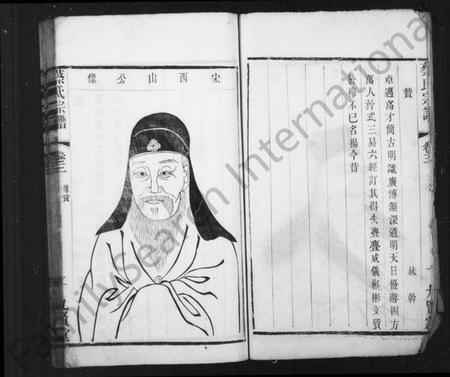 宋西山公像
蔡氏宗譜
卷三
像贊
贊
林幹
卓邁高才簡古明識廣博淵深道明天日優游四方
萬人矜式三易六經訂其得失亹亹威儀彬彬文質
不已名揚今昔
蔡氏宗譜
卷三
FamilySearch International